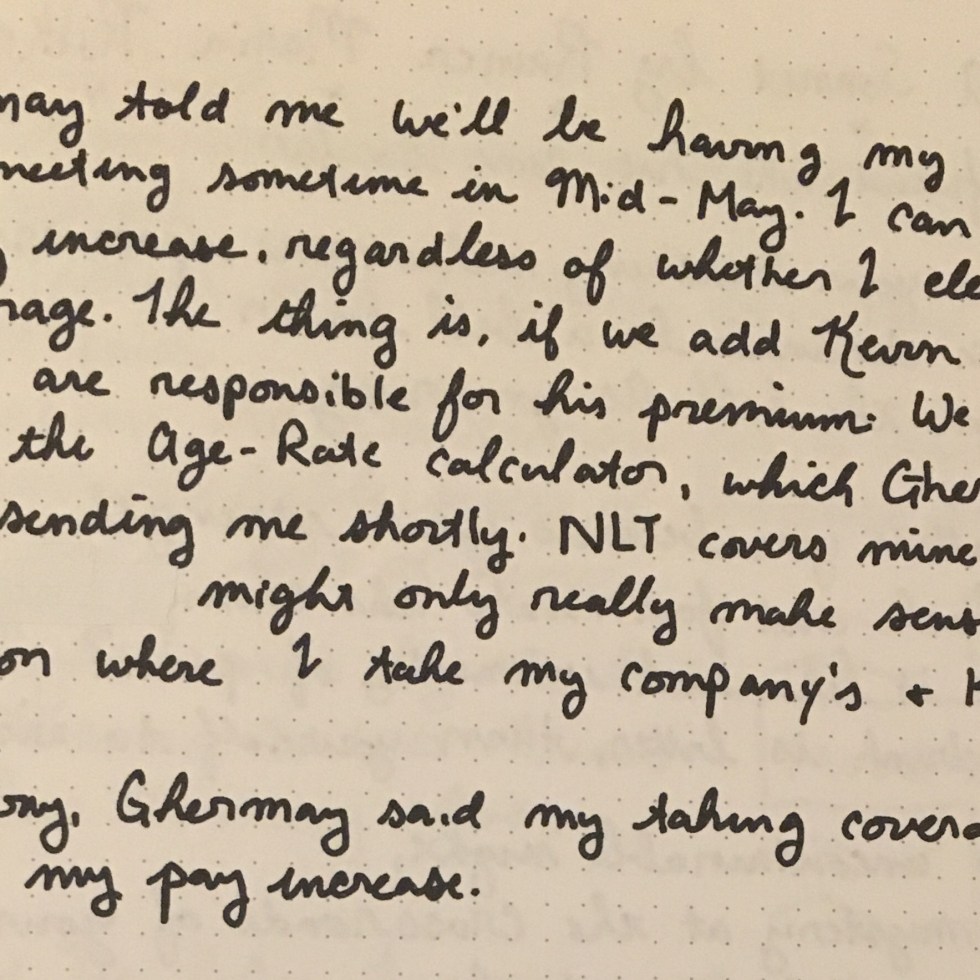 may told me we'll be having my
meeting sometime in Mid-May. I can
increase, regardless of whether I ele
rage. The thing is, if we add Kevin
are responsible for his premium. We
the Age-Rate calculator, which Gher
sending me shortly. NLT covers mine
might only really make sens
on where I take my company's +
ony, Ghermay said my taking covera
my pay increase.